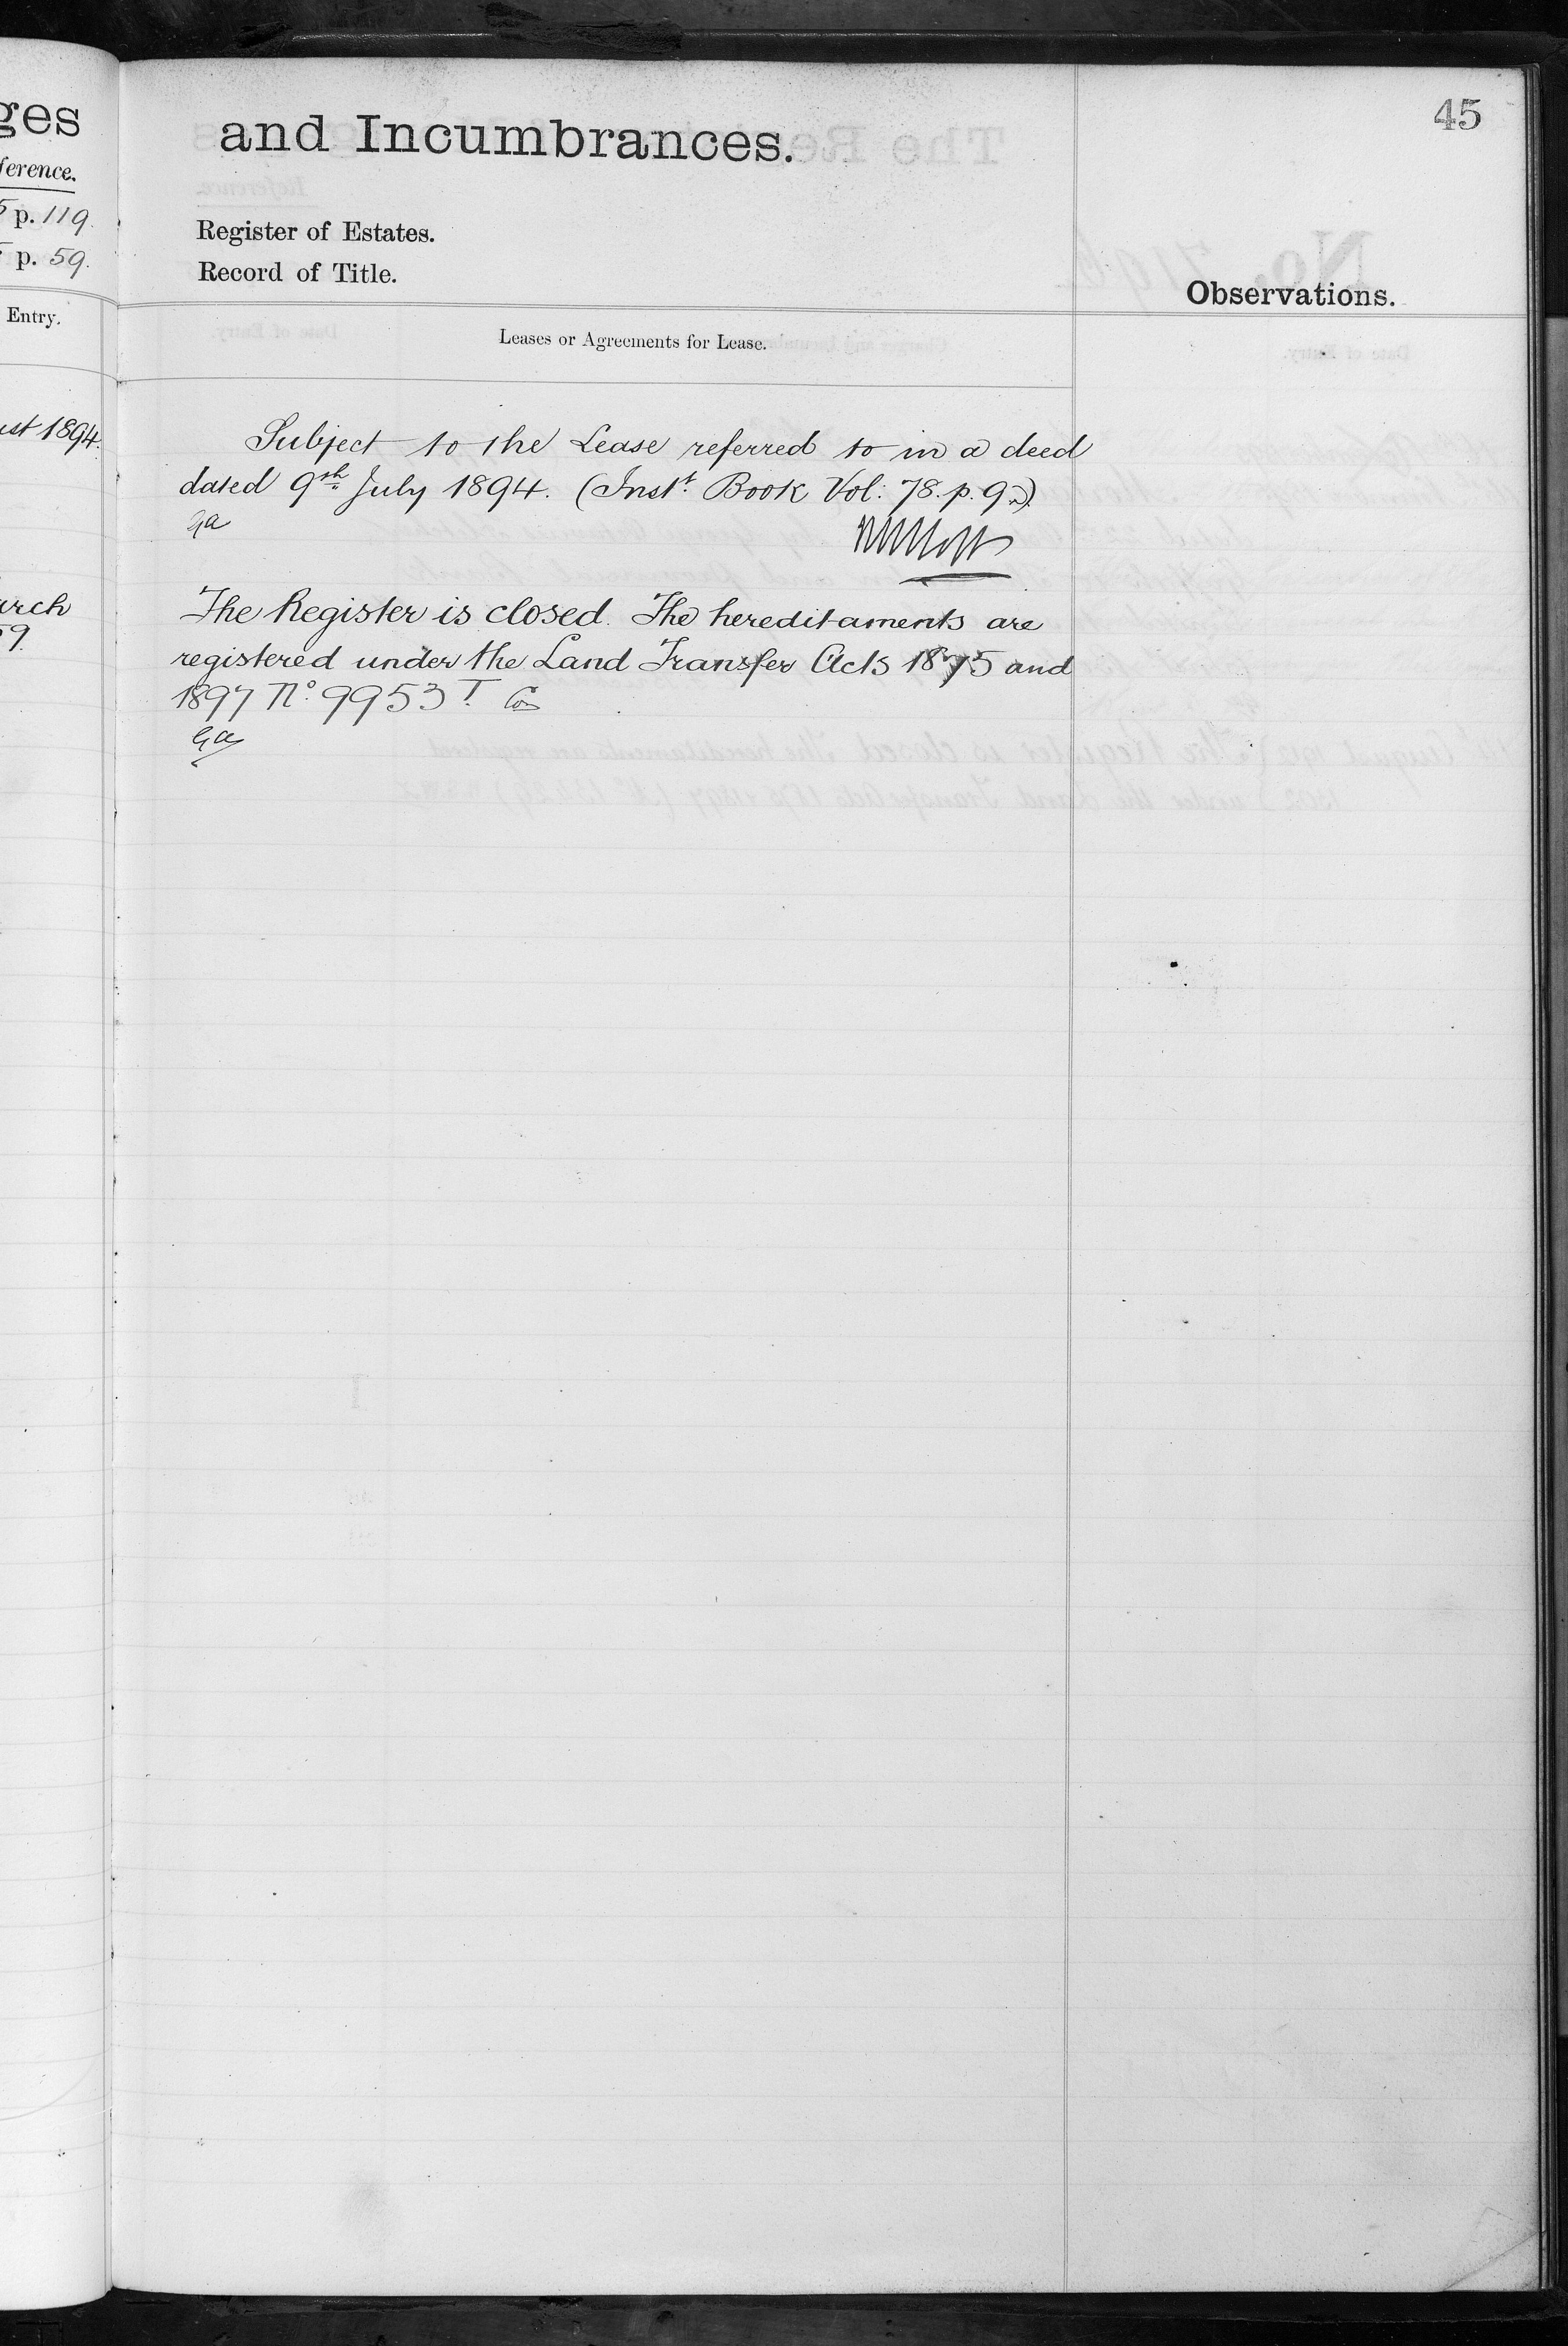 ges
ference.
p. 119.
p. 59.
Entry.
ust 1894.
arch
59.
45
and Incumbrances.
Register of Estates.
Record of Title.
Observations.
Leases or Agreements for Lease.
Subject to the Lease referred to in a deed
dated 9th July 1894. (Inst. Book Vol: 78. p. 9
Ga
The Register is closed. The hereditaments are
registered under the Land Transfer Acts 1875 and
1897 No. 9953 T.
Ga